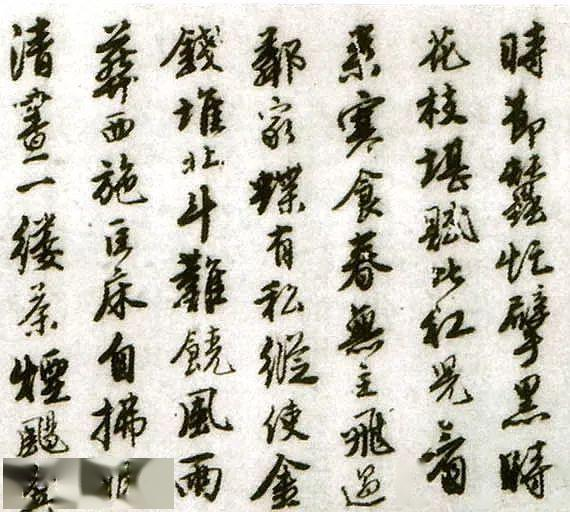 時節蠶忙擘黑時
花枝堪賦比紅兒看
來寒食春無主飛過
鄰家蝶有私縱使金
錢堆北斗難饒風雨
葬西施匡床自拂
清晝一縷茶煙颺